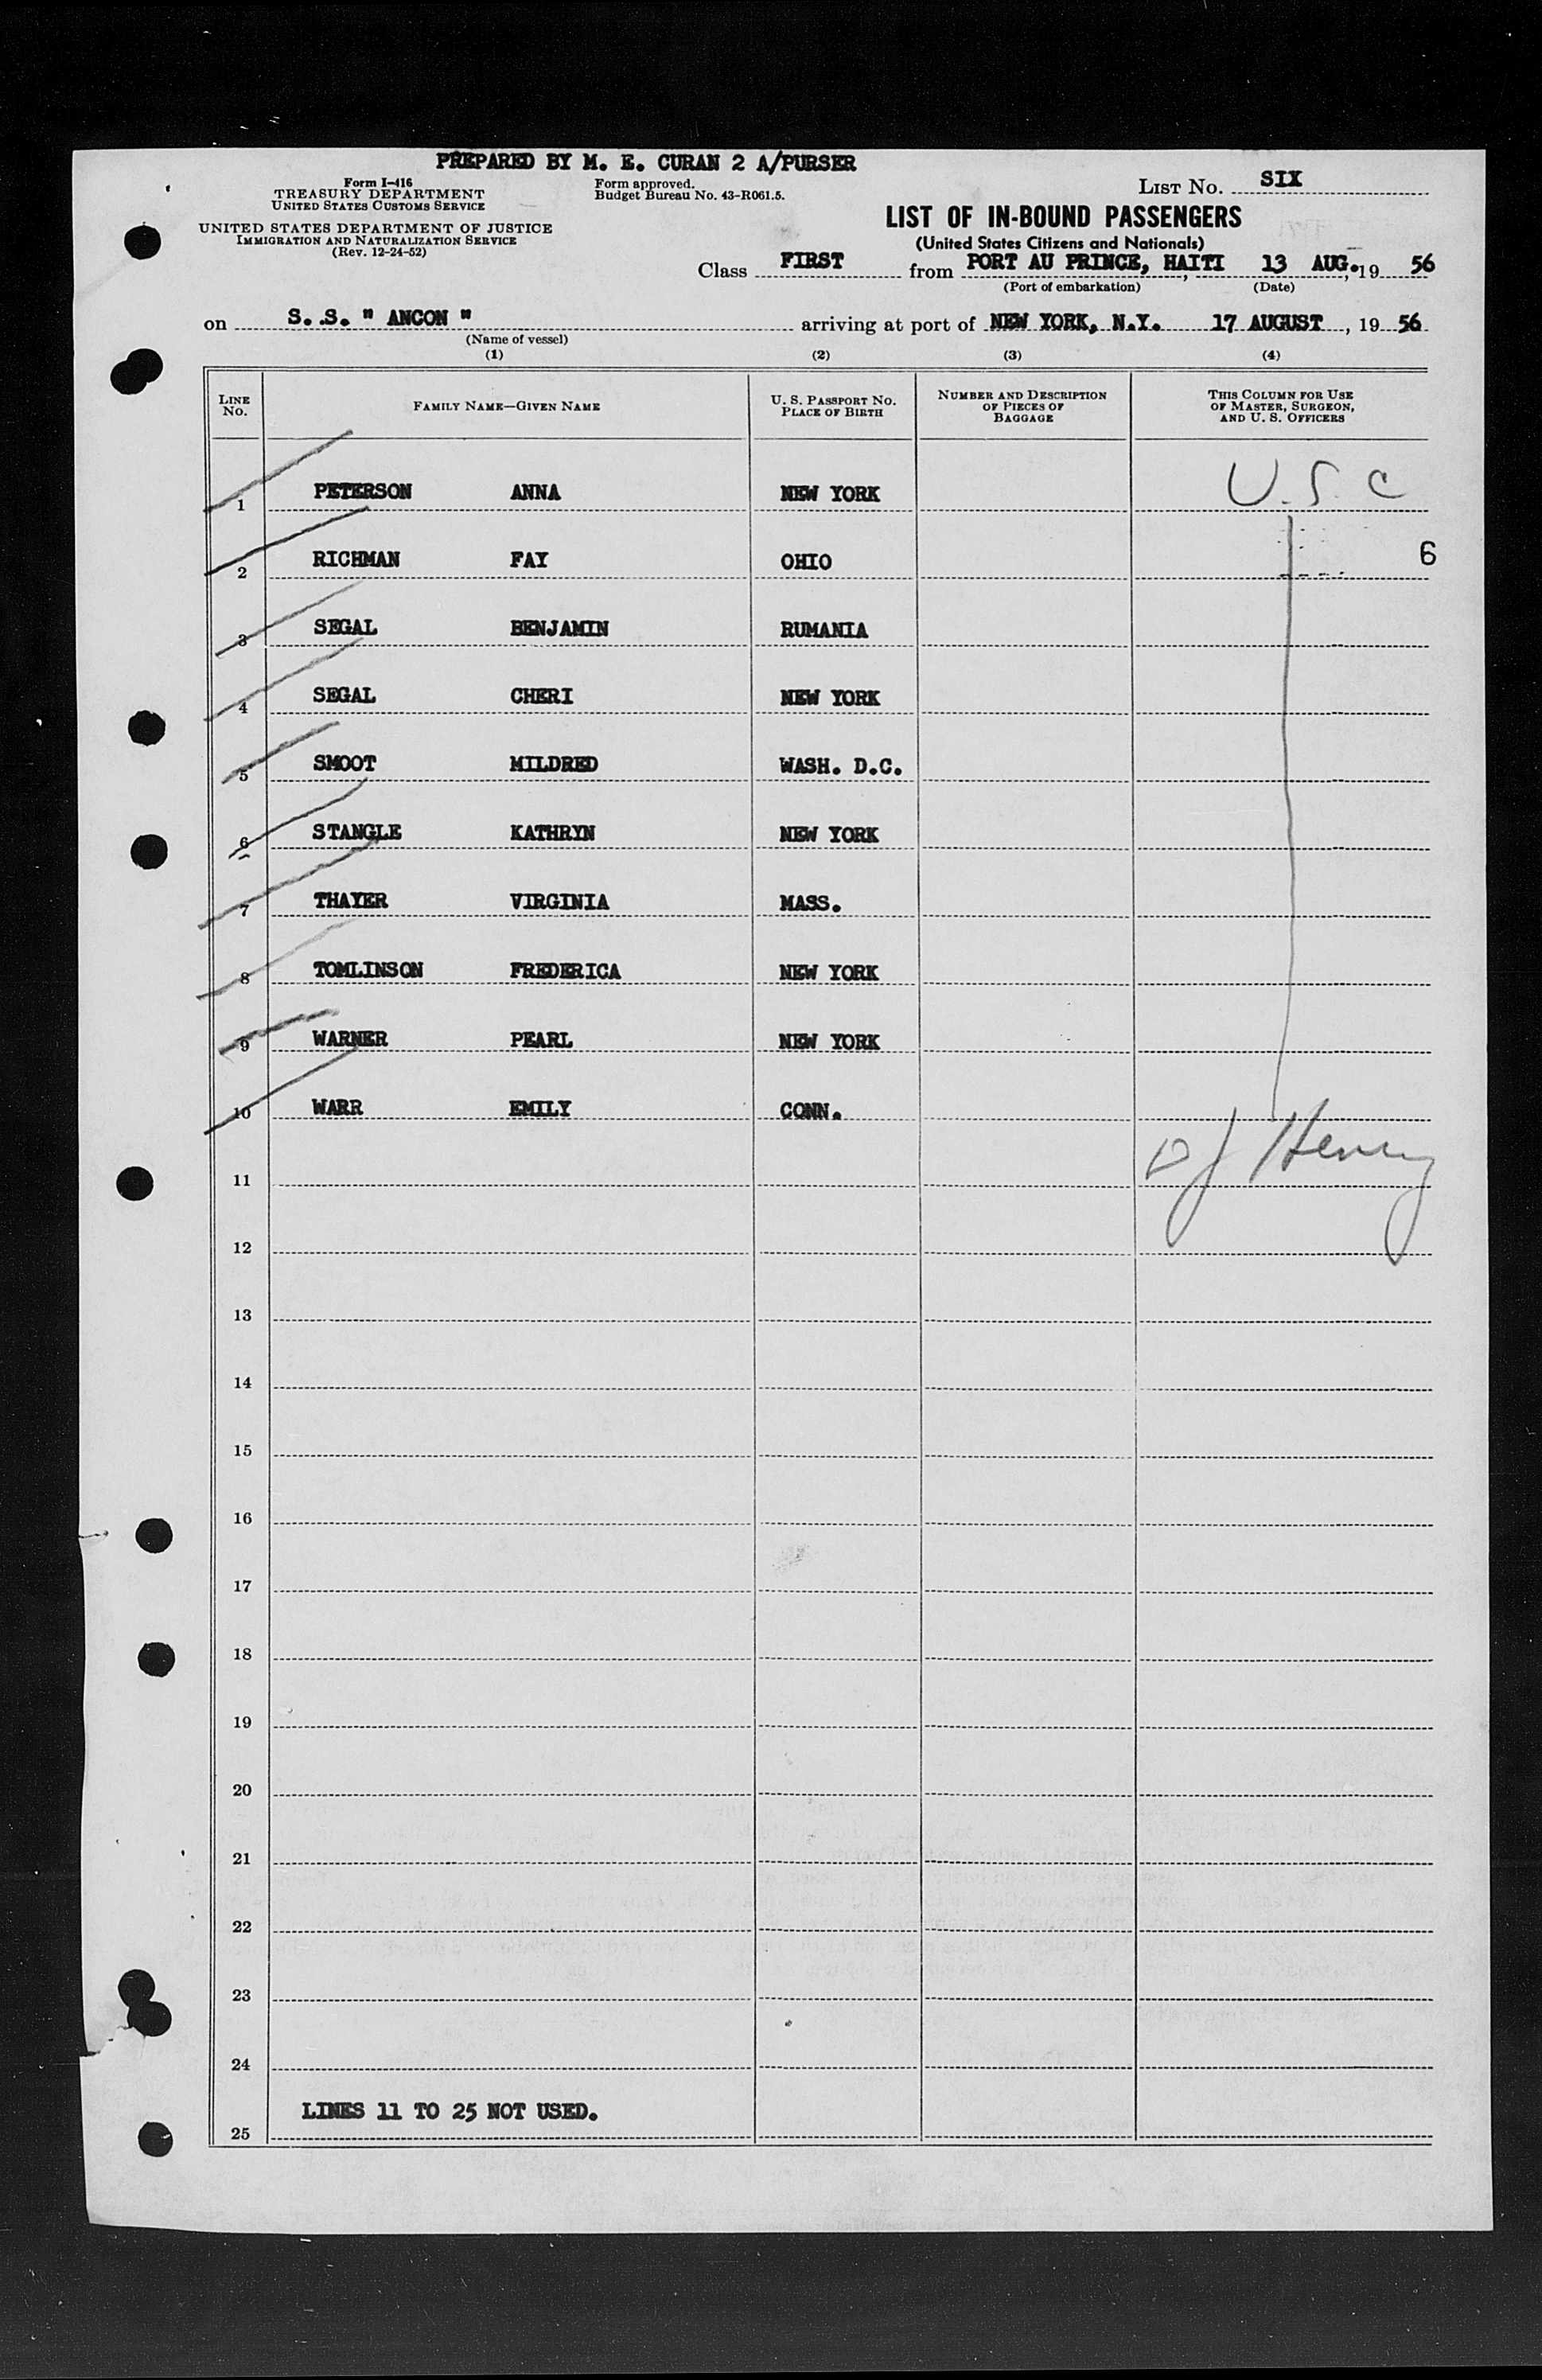 PREPARED BY M. E. CURAN 2 A/PURSER
Form I-416
TREASURY DEPARTMENT
UNITED STATES CUSTOMS SERVICE
UNITED STATES DEPARTMENT OF JUSTICE
IMMIGRATION AND NATURALIZATION SERVICE
(Rev. 12-24-52)
Form approved.
Budget Bureau No. 43-R061.5.
LIST NO. SIX
LIST OF IN-BOUND PASSENGERS
(United States Citizens and Nationals)
Class FIRST from PORT AU PRINCE, HAITI, 13 AUG., 19 56
(Port of embarkation) (Date)
on S. S. " ANCON " arriving at port of NEW YORK, N.Y. 17 AUGUST, 19 56
(Name of vessel)
(1) (2) (3) (4)
LINE NO. FAMILY NAME—GIVEN NAME U. S. PASSPORT NO. PLACE OF BIRTH NUMBER AND DESCRIPTION OF PIECES OF BAGGAGE THIS COLUMN FOR USE OF MASTER, SURGEON, AND U. S. OFFICERS
1 PETERSON ANNA NEW YORK U.S.C
2 RICHMAN FAY OHIO 6
3 SEGAL BENJAMIN RUMANIA
4 SEGAL CHERI NEW YORK
5 SMOOT MILDRED WASH. D.C.
6 STANGLE KATHRYN NEW YORK
7 THAYER VIRGINIA MASS.
8 TOMLINSON FREDERICA NEW YORK
9 WARNER PEARL NEW YORK
10 WARR EMILY CONN.
11 DJ Henry
12
13
14
15
16
17
18
19
20
21
22
23
24
25 LINES 11 TO 25 NOT USED.